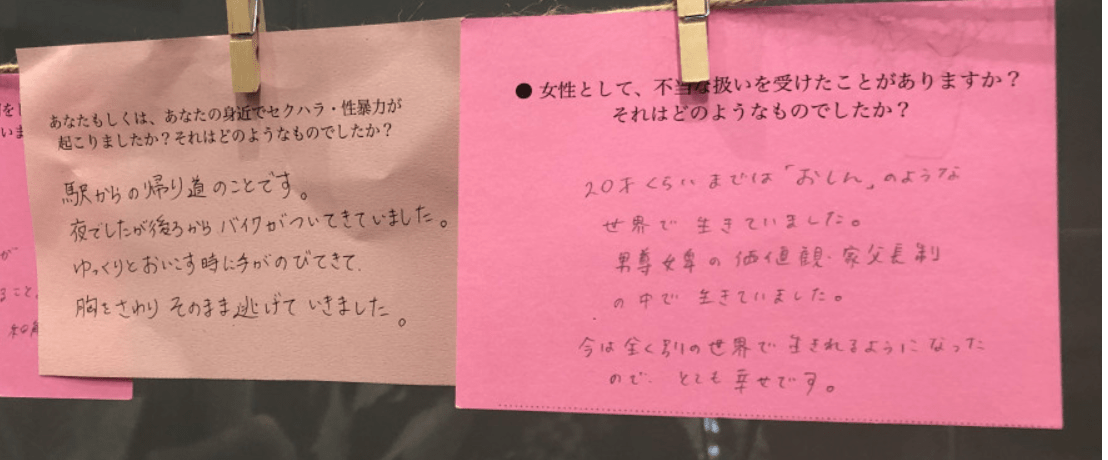 あなたもしくは、あなたの身近でセクハラ・性暴力が
起こりましたか？それはどのようなものでしたか？
駅からの帰り道のことです。
夜でしたが後ろからバイクがついてきていました。
ゆっくりとおいこす時に手がのびてきて、
胸をさわりそのまま逃げていきました。
●女性として、不当な扱いを受けたことがありますか？
それはどのようなものでしたか？
20才くらいまでは「おしん」のような
世界で生きていました。
男尊女卑の価値観・家父長制
の中で生きていました。
今は全く別の世界で生きれるようになった
ので、とても幸せです。